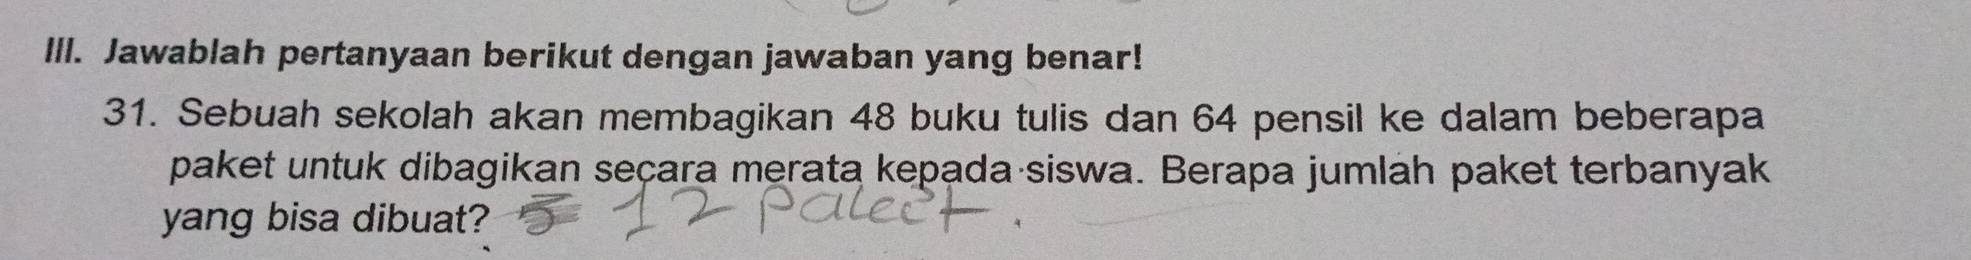 III. Jawablah pertanyaan berikut dengan jawaban yang benar!
31. Sebuah sekolah akan membagikan 48 buku tulis dan 64 pensil ke dalam beberapa
paket untuk dibagikan secara merata kepada siswa. Berapa jumlah paket terbanyak
yang bisa dibuat? 12